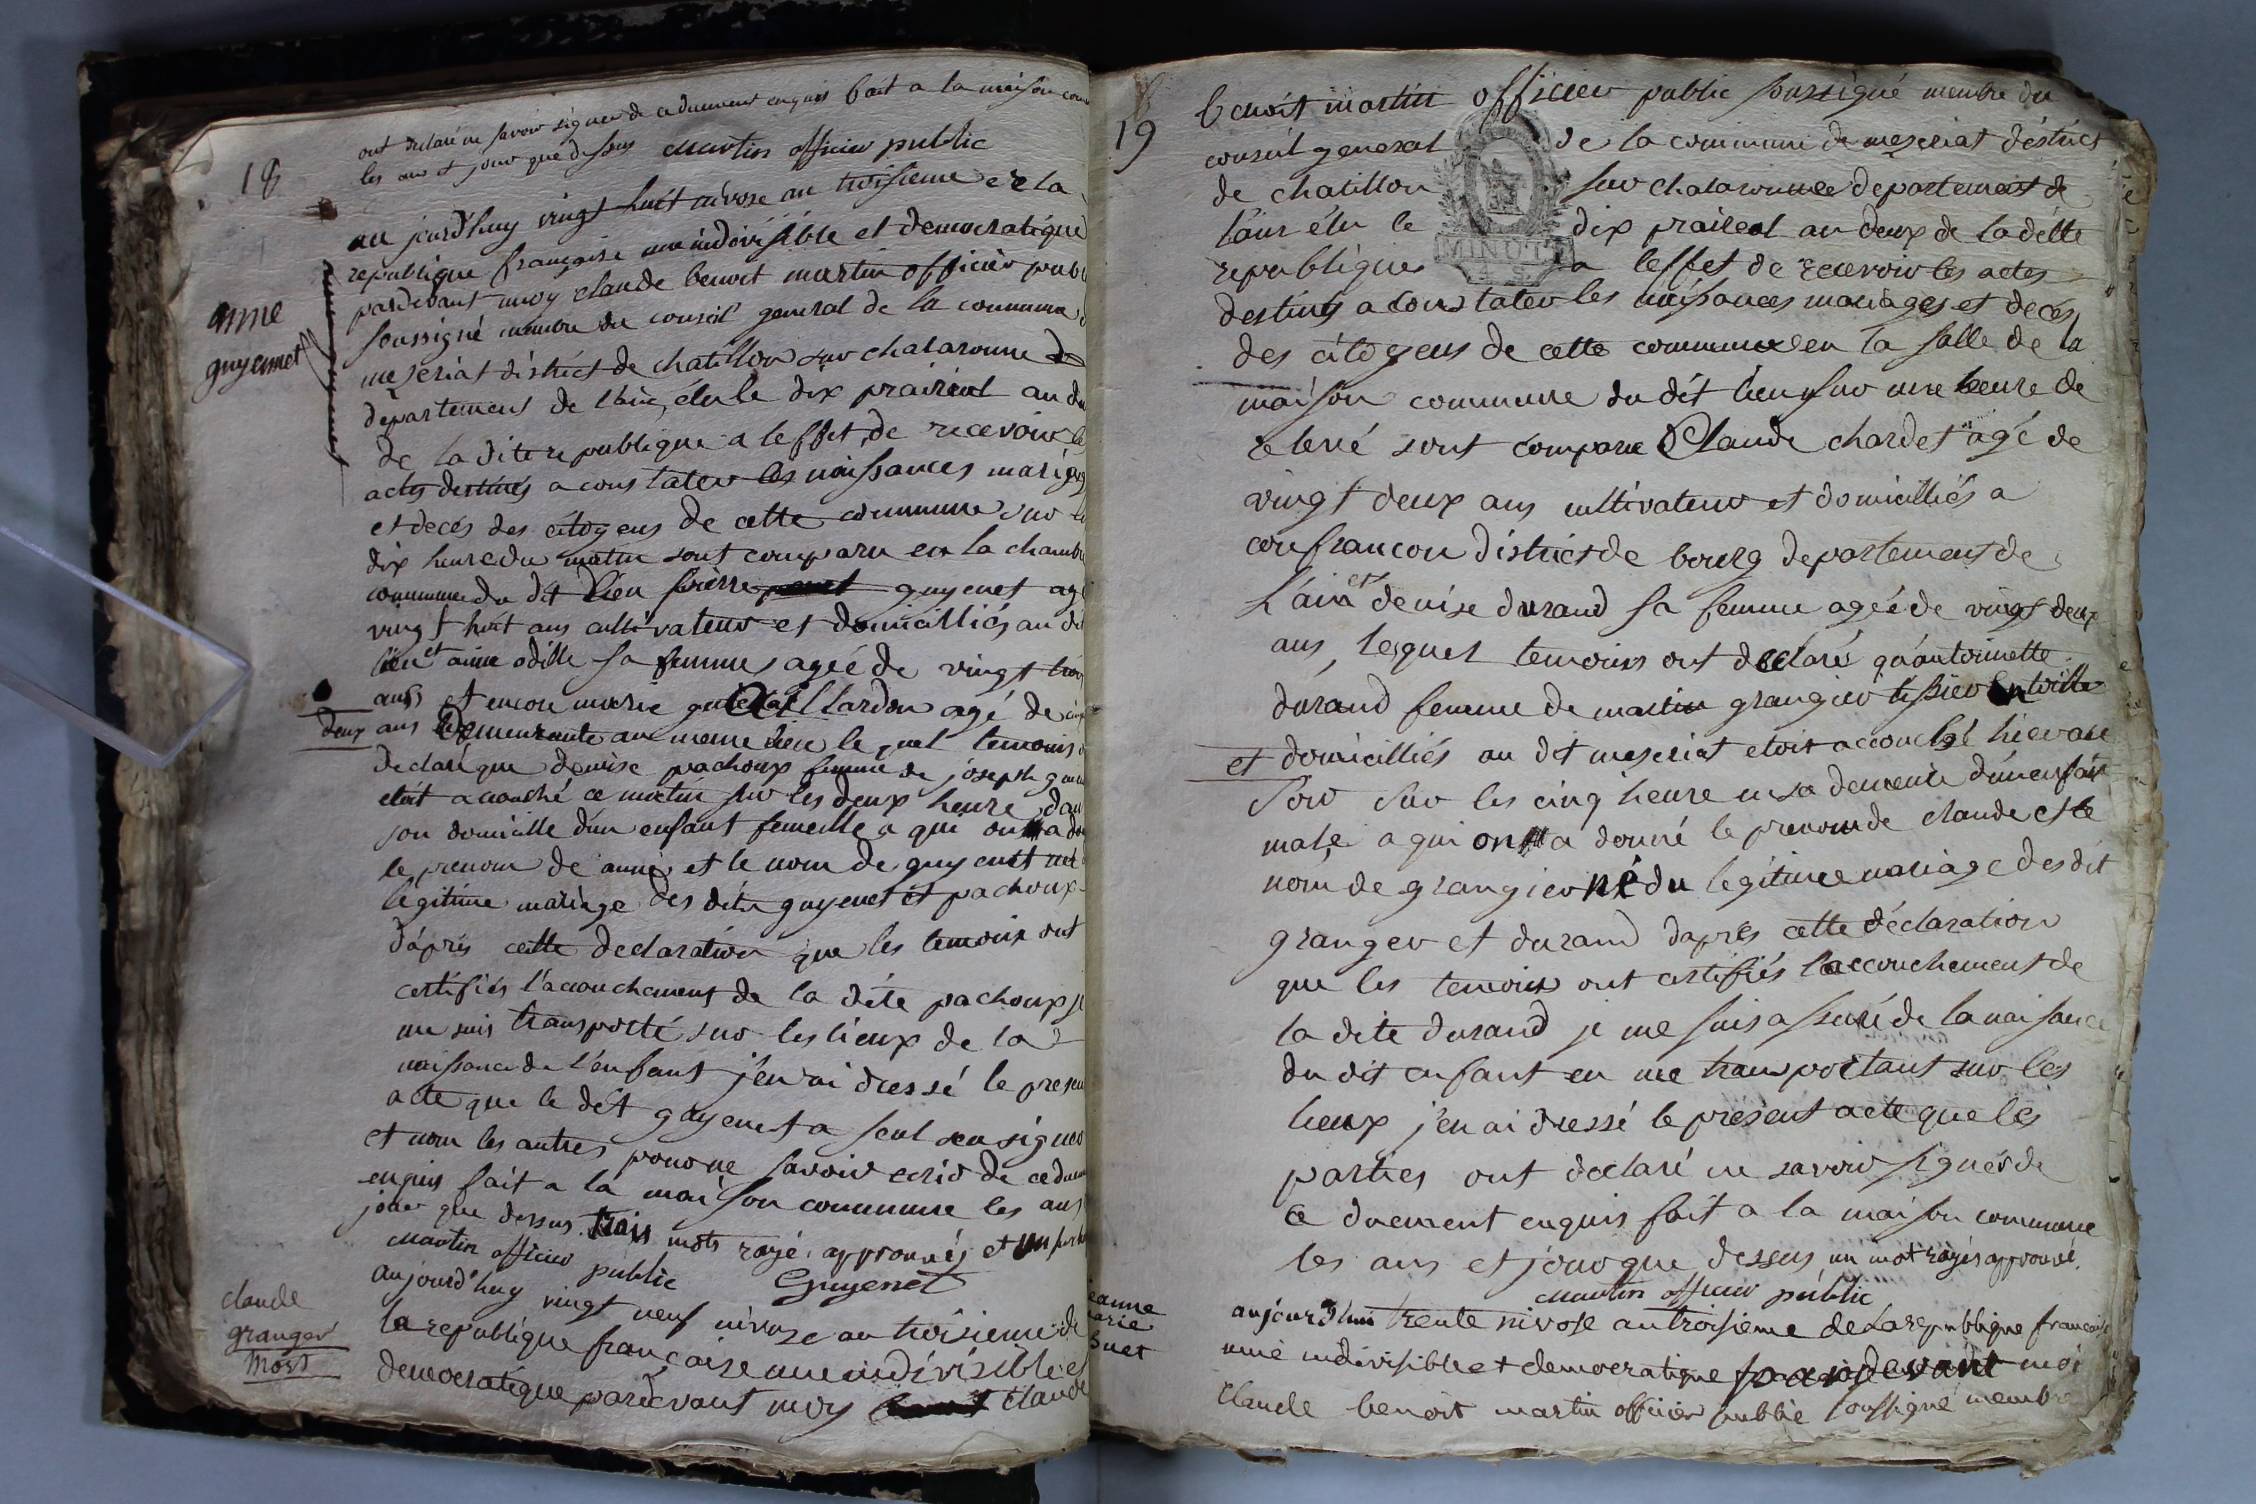 18
ont declaré ne savoir signer de ce duement enquis fait a la maison com
les an et jour que dessus Martin officier public
anne
guyennet
au jourd'huy vingt huit nivose an troisieme de la
republique française une indivisible et democratique
pardevant moy claude benoit martin officier publ
soussigné membre du conseil general de la commune d
meseriat district de chatillon sur chalaronne
departement de l'ain, élu le dix prairial an de
de la dite republique a leffet de recevoir le
actes destinés a constater les naissances mariages
et decés des citoyens de cette commune sur l
dix heure du matin sont comparu en la chambre
commune du dit lieu pierre guyenet agé
vingt huit ans cultivateur et domicilliés au dit
lieu et anne odille sa femme agée de vingt
ans et encore marie gaillardon agé de
deux ans demeurante au meme lieu le quel temoins
declaré que denise pachoux femme de joseph
etoit acouché ce matin sur les deux heure dan
son domicille d'un enfant femelle a qui on a
le prenom de anne et le nom de guyenet
legitime mariage des dits guyenet et pachoux
d'apris cette declaration que les temoins ont
certifiés l'acouchement de la dite pachoux je
me suis transporté sur les lieux de la
naissance de l'enfant j'en ai dressé le presen
acte que le dit guyenet a seul seu signer
et non les autres pour ne savoir ecrir de ce
enquis fait a la maison commune les ans
jour que dessus trois mots rayé approuvés et un
Martin officier public Guyenet
claude
granger
mort
aujourd'huy vingt neuf nivose an troisieme de
la republique française une indivisible et
democratique pardevant moy claude
19
benoit martin officier public sussigné membre du
conseil general de la commune de meseriat déstrict
de chatillon sur chalaronne departement de
l'ain élu le dix praireal an deux de la ditte
republique a leffet de recevoir les actes
MINUTE
destinés a constater les naissances mariages et decés
des citoyens de cette commune en la salle de la
maison commune du dit lieu sur une heure de
relevé sont comparu Claude chardet agé de
vingt deux ans cultivateur et domicilliés a
confrancon district de bourg departement de
L'ain et denise durand sa femme agée de vingt deux
ans, lesquel temoins ont declaré qu'antoinette
durand femme de martin grangier tissier en toille
et domicilliés au dit meseriat etoit accouché hier au
soir sur les cinq heure en sa demeure d'un enfan
male a qui on a donné le prenom de claude et le
nom de grangier né du legitime mariage des dit
granger et durand d'apres cette déclaration
que les temoins ont certifiés laccouchement de
la dite durand je me suis assuré de la naissance
du dit enfant en me transportant sur les
lieux j'en ai dressé le present acte que les
parties ont declaré ne savoir signés de
ce duement enquis fait a la maison commune
les ans et jour que dessus un mot rayés approuvé.
Martin officier public
eanne
arie
buet
aujourd'hui trente nivose an troisieme de la republique francaise
une indivisible et democratique pardevant moi
Claude benoit martin officier public soussigné membre